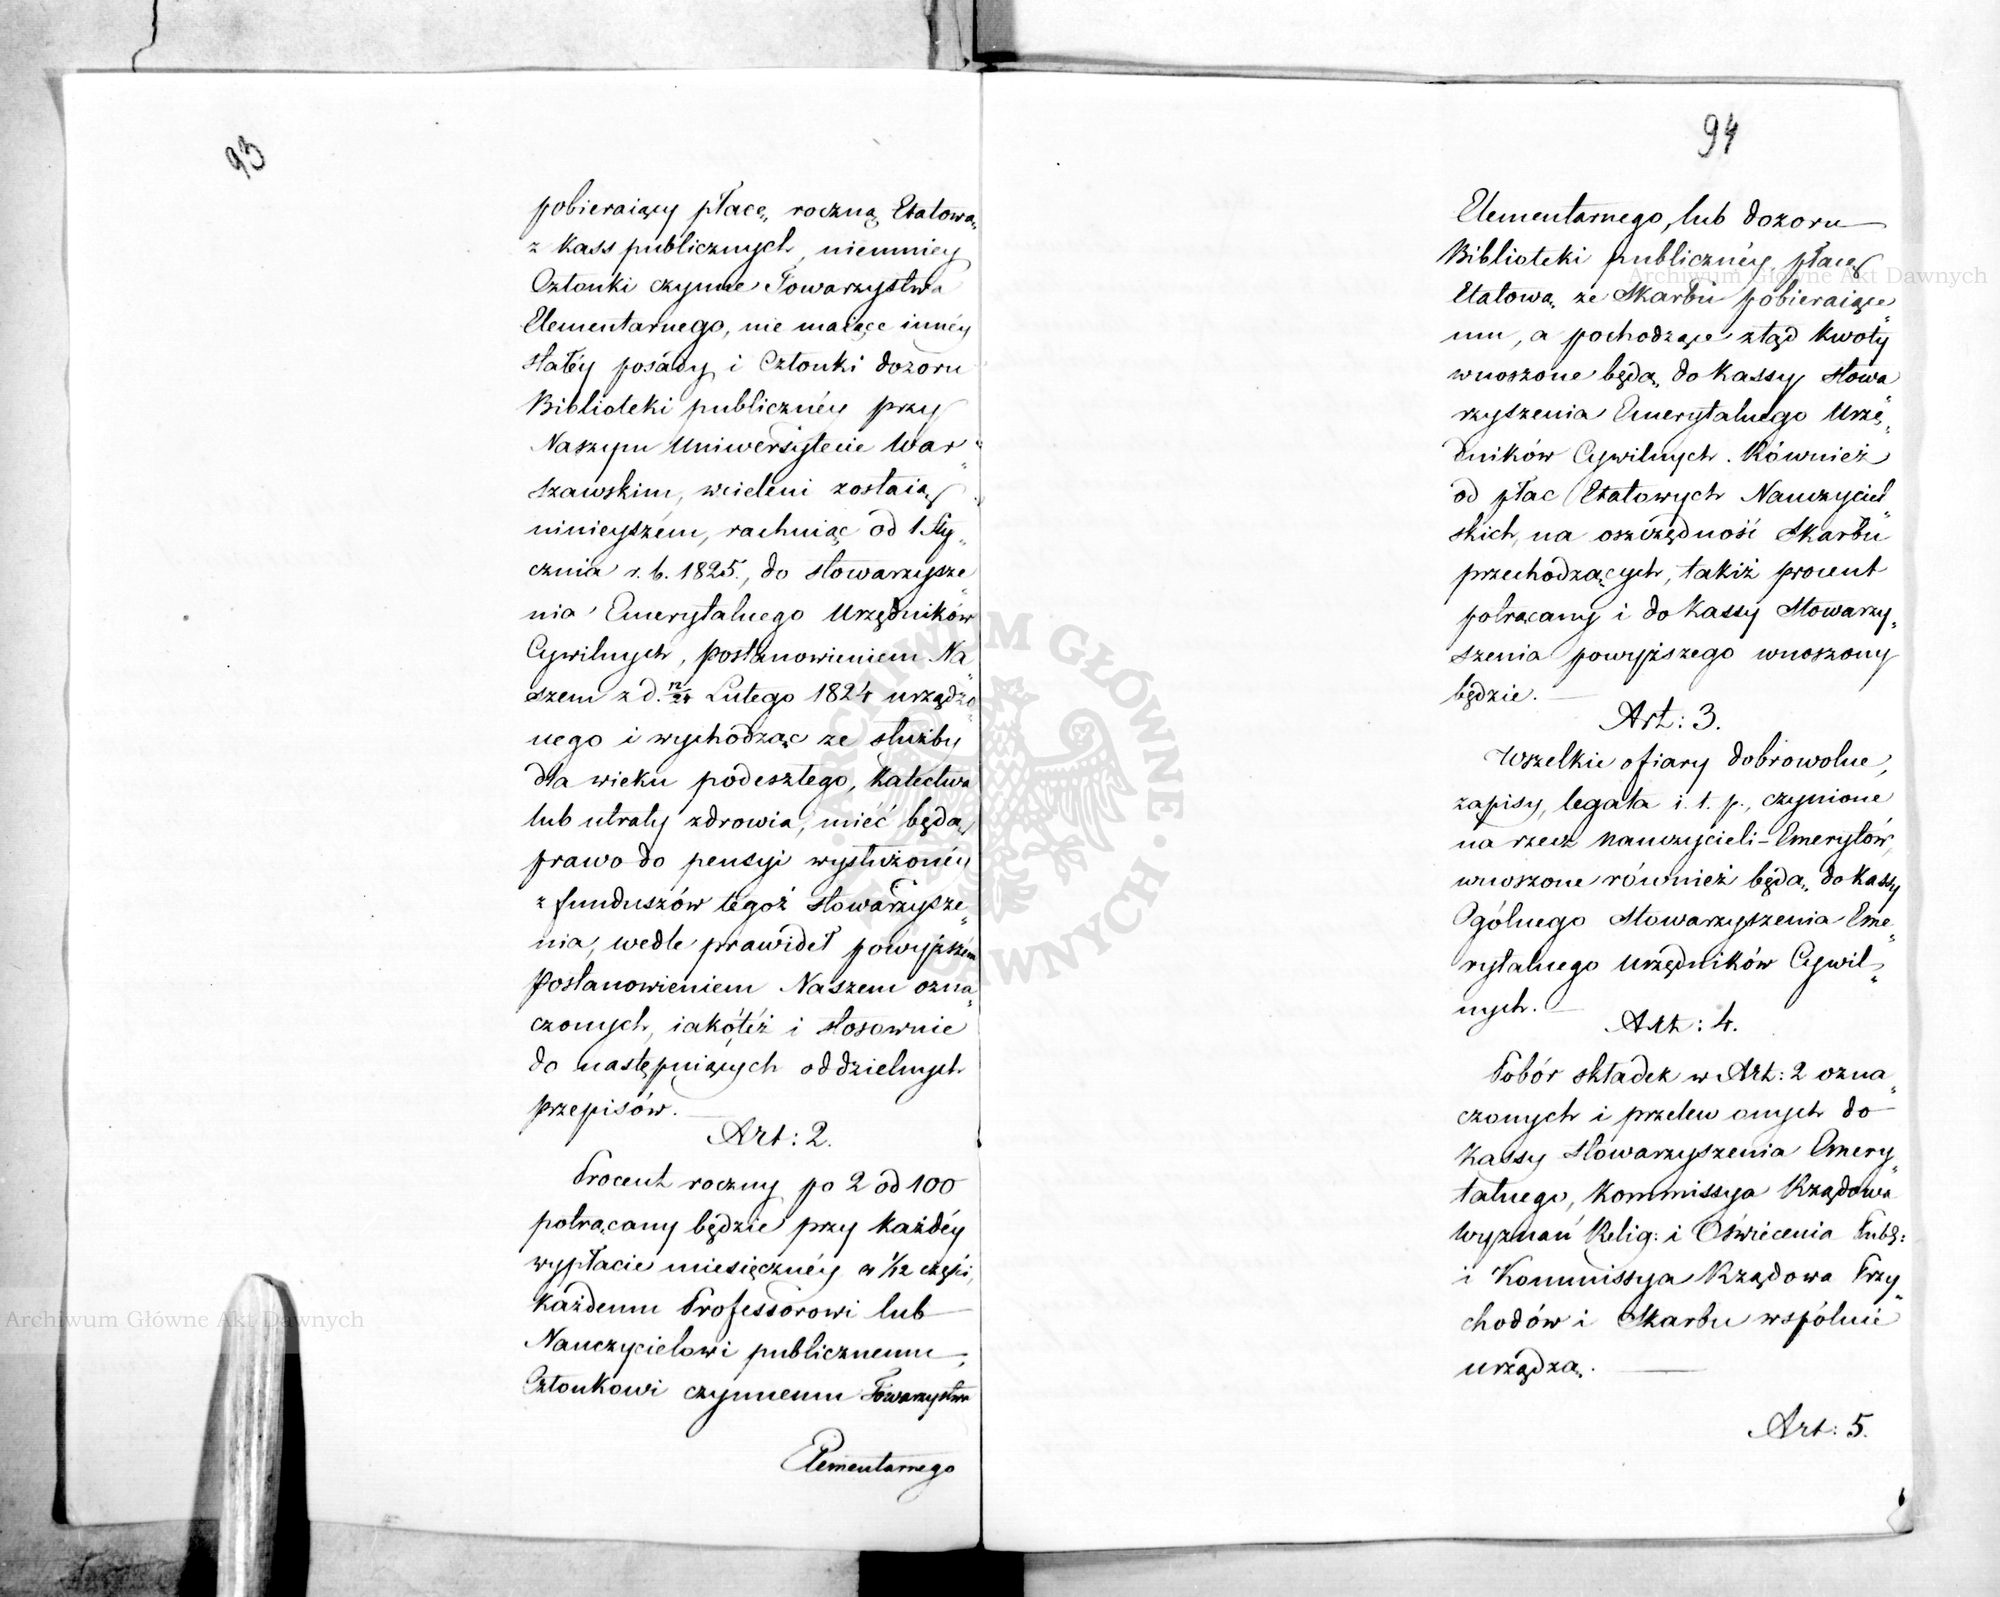 93
pobieraiący płacę roczną Etatową
z kass publicznych, niemniey
Członki czynne Towarzystwa
Elementarnego, nie maiące innéy
stałéy posády i Członki dozoru
Biblioteki publicznéy przy
Naszym Uniwersytecie War„
szawskim, wcieleni zostaią
ninieyszém, rachuiąc od 1 Sty„
cznia r. b. 1825., do stowarzysze„
nia Emerytalnego Urzędników
Cywilnych, postanowieniem Na„
szem z d. 12/24 Lutego 1824 urządzo„
nego i wychodząc ze służby
dla wieku podeszłego, kalectwa
lub utraty zdrowia, mieć będą
prawo do pensyi wysłużonéy
z funduszów tegoż stowarzysze„
nia, wedle prawideł powyższém
postanowieniem Naszem ozna„
czonych, iakótéż i stosownie
do następuiących oddzielnych
przepisów.
Art: 2.
Procent roczny po 2 od 100
potrącany będzie przy każdéy
wypłacie miesięcznéy w 1/12 części,
każdemu Professorowi lub
Nauczycielowi publicznemu,
Członkowi czynnemu Towarzystwa
Elementarnego
94
Elementarnego, lub dozoru
Biblioteki publicznéy płacę
Etatową ze Skarbu pobieraiące„
mu, a pochodzące ztąd kwoty
wnoszone będą do kassy stowa„
rzyszenia Emerytalnego Urzę„
dników Cywilnych. Również
od płac Etatowych Nauczyciel„
skich, na oszczędność Skarbu
przechodzących, takiż procent
potrącany i do kassy Stowarzy„
szenia powyższego wnoszony
będzie.
Art: 3.
Wszelkie ofiary dobrowolne,
zapisy, legata i. t. p., czynione
na rzecz nauczycieli-Emerytów,
wnoszone również będą do kassy
Ogólnego Stowarzyszenia Eme„
rytalnego Urzędników Cywil„
nych.
Art: 4.
Pobór składek w Art: 2 ozna„
czonych i przelew onych do
kassy Stowarzyszenia Emery„
talnego, Kommissya Rządowa
Wyznań Relig: i Oświecenia Publ:
i Kommissya Rządowa Przy„
chodów i Skarbu wspólnie
urządzą.
Art: 5.
Archiwum Główne Akt Dawnych
Archiwum Główne Akt Dawnych
ARCHIWUM GŁÓWNE AKT DAWNYCH